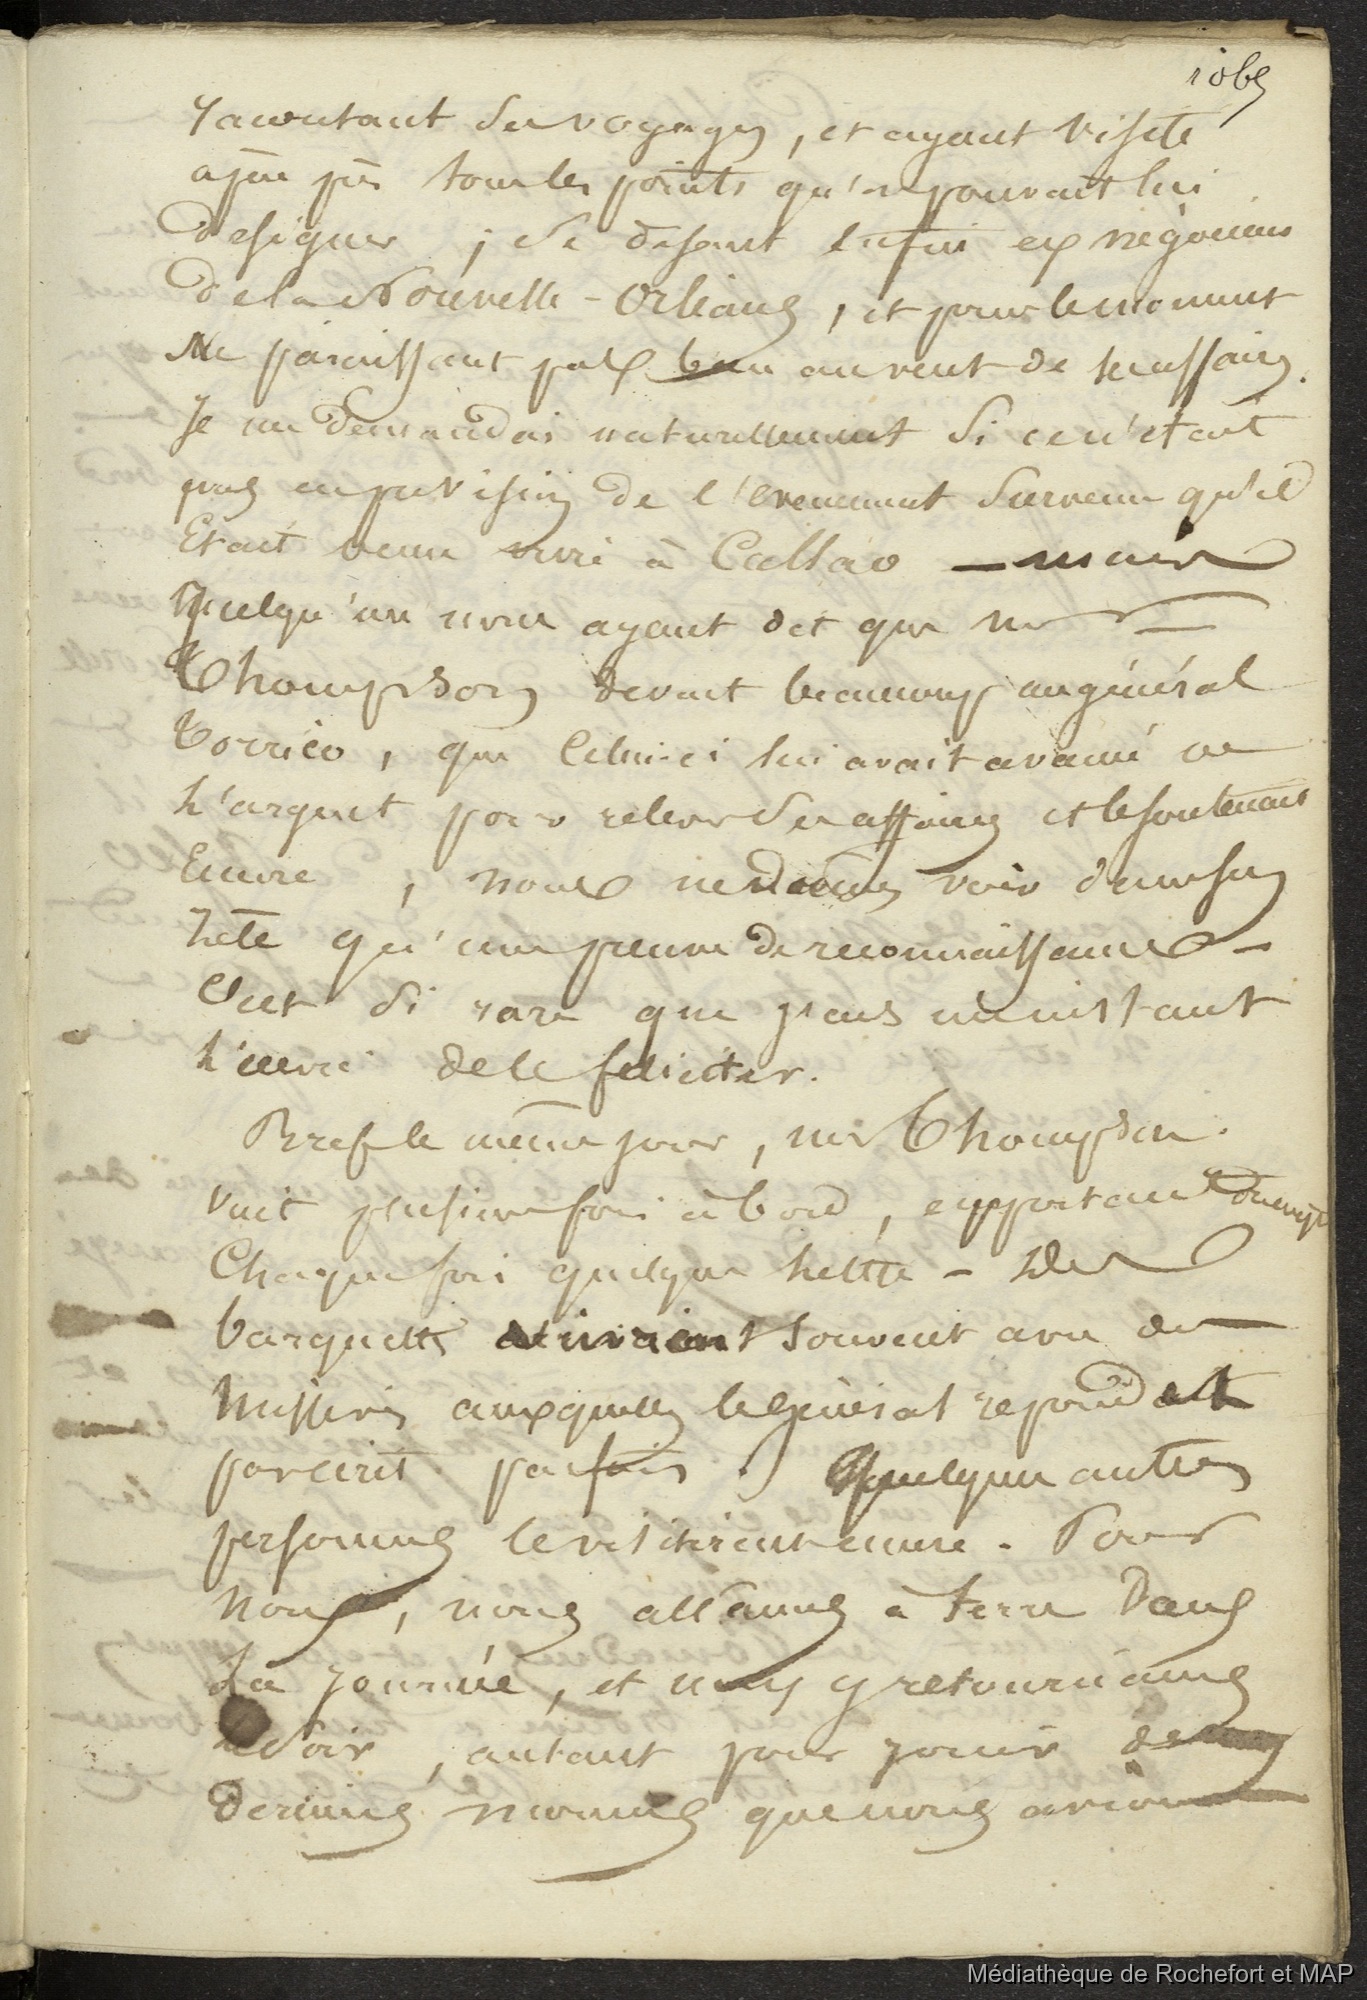 1065
racontant ses voyages, et ayant visité
à peu près tous les points qu'on pouvait lui
designer ; se disant enfin ex négociant
de la Nouvelle-Orléans, et pour le moment
Ne paraissant pas bien au vent de ses affaires.
Je me demandais naturellement si ce n'était
pas en prévision de l'évenement survenu qu'il
Etait venu ici à Callao – mais
Quelqu'un nous ayant dit que mr
Thompson devait beaucoup au général
Torrico, que Celui-ci lui avait avancé de
l'argent pour relever ses affaires et le soutenait
Encore, nous ne dûmes voir dans son
zèle qu'une preuve de reconnaissance –
C'est si rare que j'eus un instant
l'envie de le feliciter.
Bref le même jour, mr Thompson
vint plusieurs fois à bord, apportant
Chaque fois quelque lettre – Des
barquettes arrivaient souvent avec des
Missives auxquelles le général repondait
par écrit parfois. Quelques autres
personnes le visitèrent encore. Pour
nous, nous allâmes à terre Dans
La journée, et nous y retournâmes
le Soir, autant pour jouir des
derniers moments que nous avions
Médiathèque de Rochefort et MAP